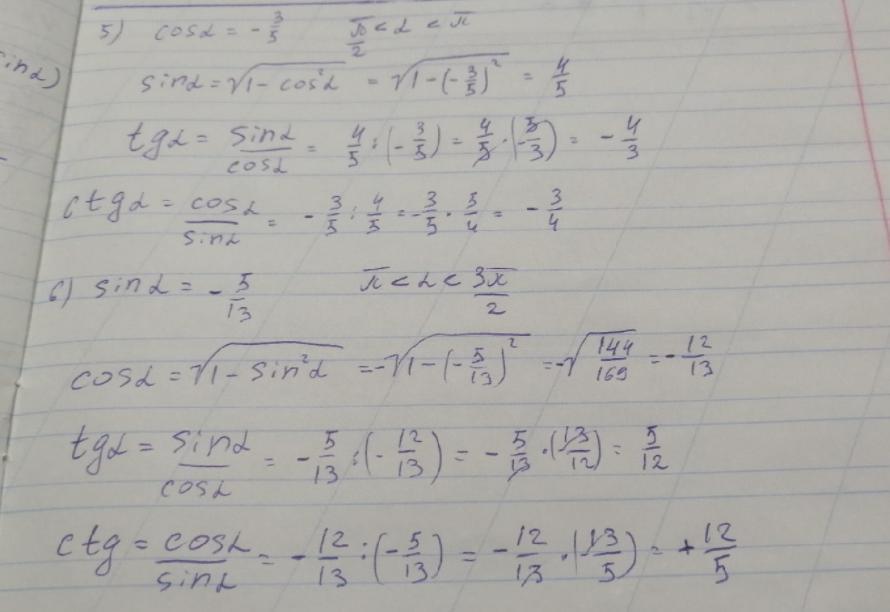 5) cosα = -3/5 π/2 < α < π
sinα) sinα = √(1 - cos²α) = √(1 - (-3/5)²) = 4/5
tgα = sinα/cosα = 4/5 : (-3/5) = 4/5 · (-5/3) = -4/3
ctgα = cosα/sinα = -3/5 : 4/5 = -3/5 · 5/4 = -3/4
6) sinα = -5/13 π < α < 3π/2
cosα = √(1 - sin²α) = -√(1 - (-5/13)²) = -√(144/169) = -12/13
tgα = sinα/cosα = -5/13 : (-12/13) = -5/13 · (13/12) = 5/12
ctg = cosα/sinα = -12/13 : (-5/13) = -12/13 · (13/5) = +12/5